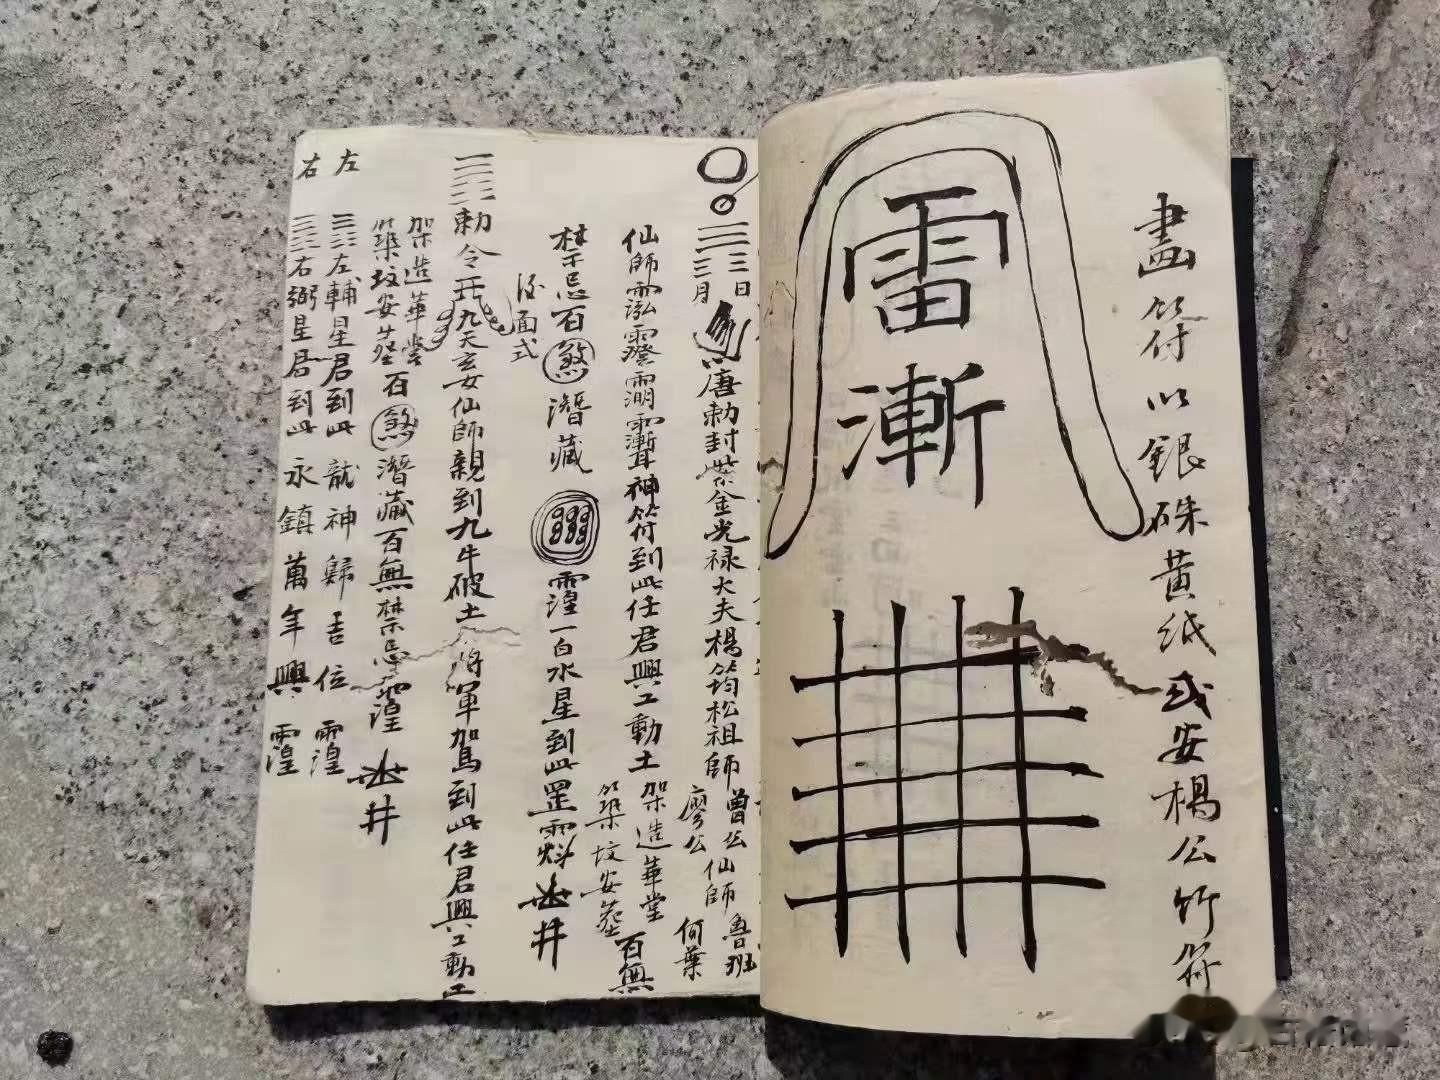 畫符以銀硃黃紙或安楊公竹符
雷
漸
三日
三月
唐勅封紫金光禄大夫楊筠松祖師
曾公
廖公
仙師
魯班
何葉
仙師
神符到此任君興工動土
架造華堂
築坟安葬
百無
禁忌百煞潛藏
一白水星到此罡
井
面式
勅令
九天玄女仙師親到九牛破土
將軍駕到此任君興工動工
架造華堂
築坟安葬
百煞潛藏百無禁忌
井
左
左輔星君到此
龍神歸吉位
右
右弼星君到此
永鎮萬年興